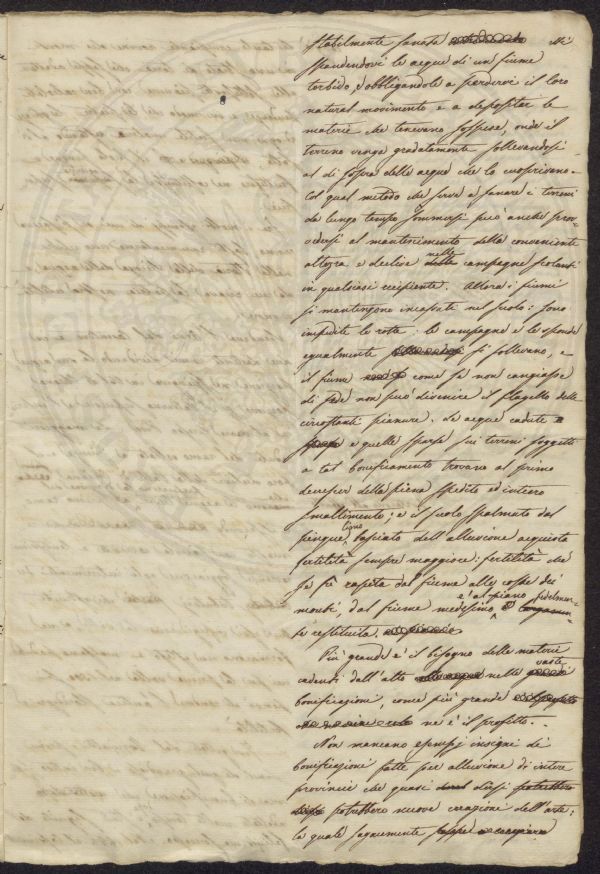 stabilmente sanata
spandendovi le acque di un fiume
torbido, obbligandole a perdervi il loro
natural movimento e a depositar le
materie che tenevano sospese, onde il
terreno venga gradatamente sollevandosi
al di sopra delle acque che lo cuoprivano.
Col qual metodo che serve a sanare i terreni
da lungo tempo sommersi può anche prov-
vedersi al mantenimento della conveniente
altezza e declive nelle campagne scolanti
in qualsiasi recipiente. Allora i fiumi
si mantengono incassati nel suolo: sono
impedite le rotte: le campagne e le sponde
egualmente si sollevano, e
il fiume come se non cangiasse
di sede non può divenire il flagello delle
circostanti pianure. Le acque cadute
e quelle sparse sui terreni soggetti
a tal bonificamento trovano al primo
decrescer della piena spedito ed intero
smaltimento; e il suolo spalmato dal
pingue limo lasciato dall'alluvione acquista
fertilità sempre maggiore: fertilità che
se fù rapita dal fiume alle coste dei
monti, dal fiume medesimo è al piano fedelmen-
te restituita.
Più grande è il bisogno delle materie
cadenti dall'alto nelle vaste
bonificazioni, come più grande
ne è il profitto.
Non mancano esempj insigni di
bonificazioni fatte per alluvione di intere
provincie che quasi dirsi
potrebbero nuove creazioni dell'arte;
la quale seguemente